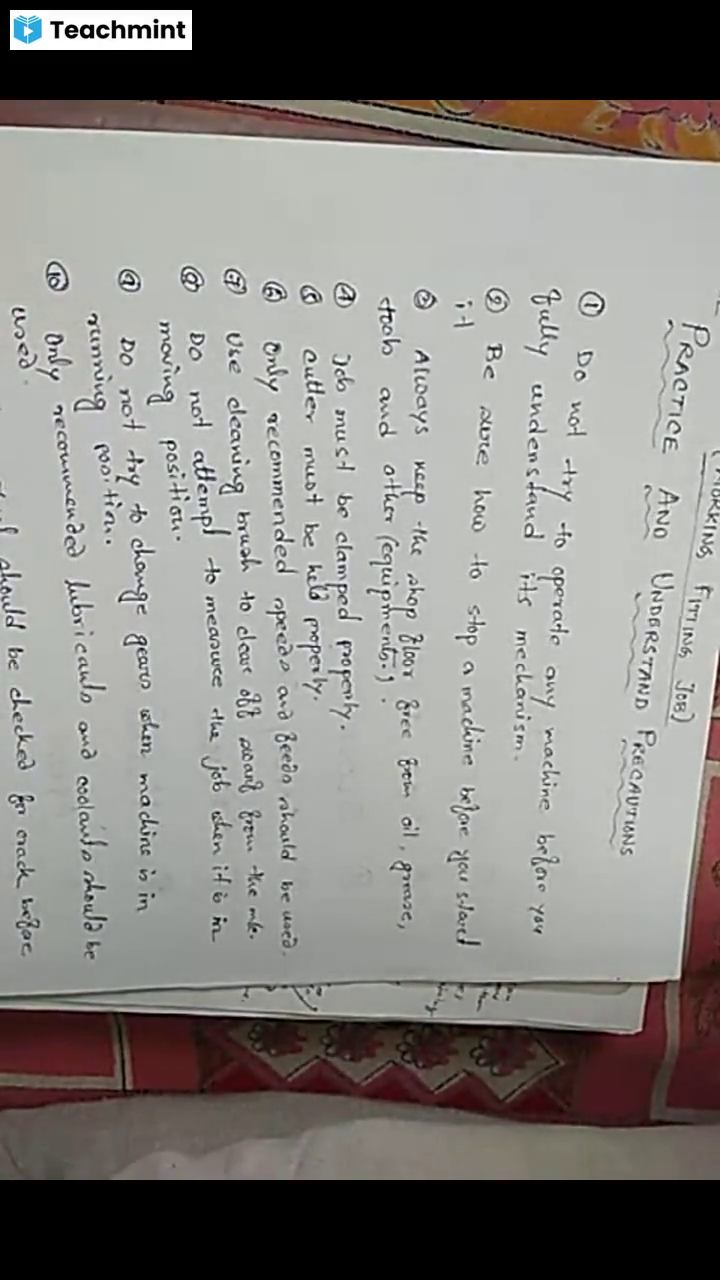 Teachmint
WORKING FITTING JOB)
PRACTICE AND UNDERSTAND PRECAUTIONS
① Do not try to operate any machine before you
fully understand its mechanism.
② Be sure how to stop a machine before you start
it
③ Always keep the shop floor free from oil, grease,
tools and other (equipments).
④ Job must be clamped properly.
⑤ cutter must be held properly.
⑥ Only recommended speeds and feeds should be used.
⑦ Use cleaning brush to clear off swarf from the m/c.
⑧ Do not attempt to measure the job when it is in
moving position.
⑨ Do not try to change gears when machine is in
running position.
⑩ Only recommended lubricants and coolants should be
used.
should be checked for crack before